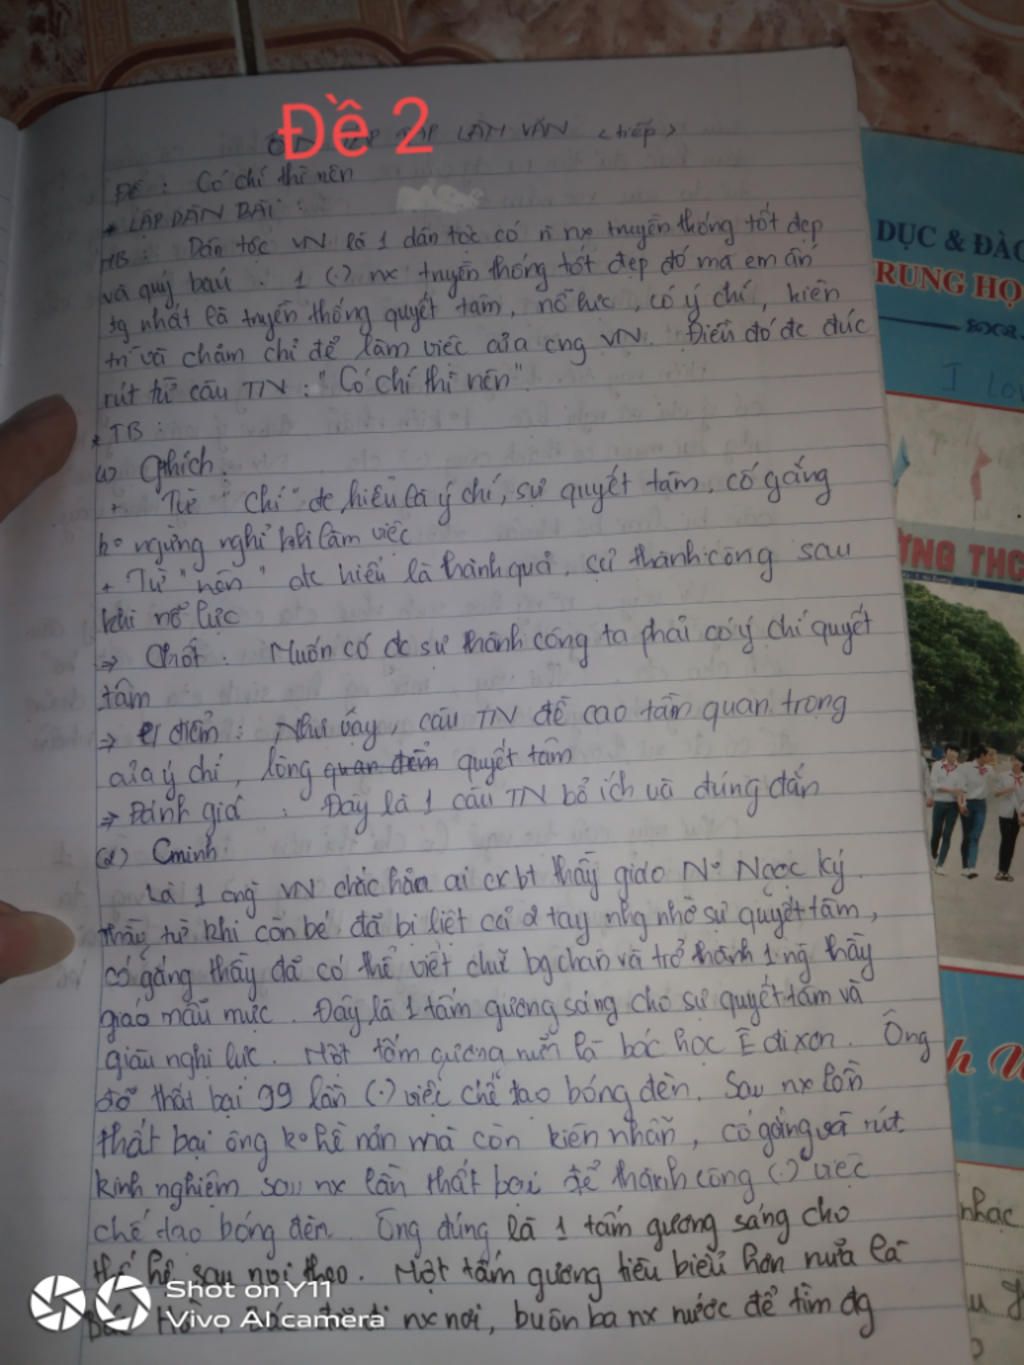 Đề 2
ÔN TẬP TẬP LÀM VĂN (tiếp)
Đề : Có chí thì nên
* LẬP DÀN BÀI :
MB : Dân tộc VN là 1 dân tộc có n nx truyền thống tốt đẹp
và quý báu . 1 (.) nx truyền thống tốt đẹp đó mà em ấn
tg nhất là truyền thống quyết tâm, nỗ lực, có ý chí, kiên
trì và chăm chỉ để làm việc của cng VN. Điều đó đc đúc
rút từ câu TN : "Có chí thì nên".
* TB :
(1) Gthích :
+ Từ "chí" đc hiểu là ý chí, sự quyết tâm, cố gắng
ko ngừng nghỉ khi làm việc
+ Từ "nên" đc hiểu là thành quả, sự thành công sau
khi nỗ lực
=> Chốt : Muốn có đc sự thành công ta phải có ý chí quyết
tâm
=> điểm : Như vậy, câu TN đề cao tầm quan trọng
của ý chí, lòng quan điểm quyết tâm
=> Đánh giá : Đây là 1 câu TN bổ ích và đúng đắn
(2) Cminh :
Là 1 cng VN chắc hẳn ai cx bt thầy giáo No Ngọc Ký.
Thầy từ khi còn bé đã bị liệt cả 2 tay nhg nhờ sự quyết tâm,
cố gắng thầy đã có thể viết chữ bg chân và trở thành 1 ng thầy
giáo mẫu mực. Đây là 1 tấm gương sáng cho sự quyết tâm và
giàu nghị lực. Một tấm gương nữa là bác học Êdixơn. Ông
đã thất bại 99 lần (.) việc chế tạo bóng đèn. Sau nx lần
thất bại ông ko hề nản mà còn kiên nhẫn, cố gắng và rút
kinh nghiệm sau nx lần thất bại để thành công (.) việc
chế tạo bóng đèn. Ông đúng là 1 tấm gương sáng cho
thế hệ sau noi theo. Một tấm gương tiêu biểu hơn nữa là
Bác Hồ. Bác đã đi nx nơi, buôn ba nx nước để tìm đg
Shot on Y11
Vivo AI camera
DỤC & ĐÀO
RUNG HỌ
I Lov
ỜNG THC
nhạc